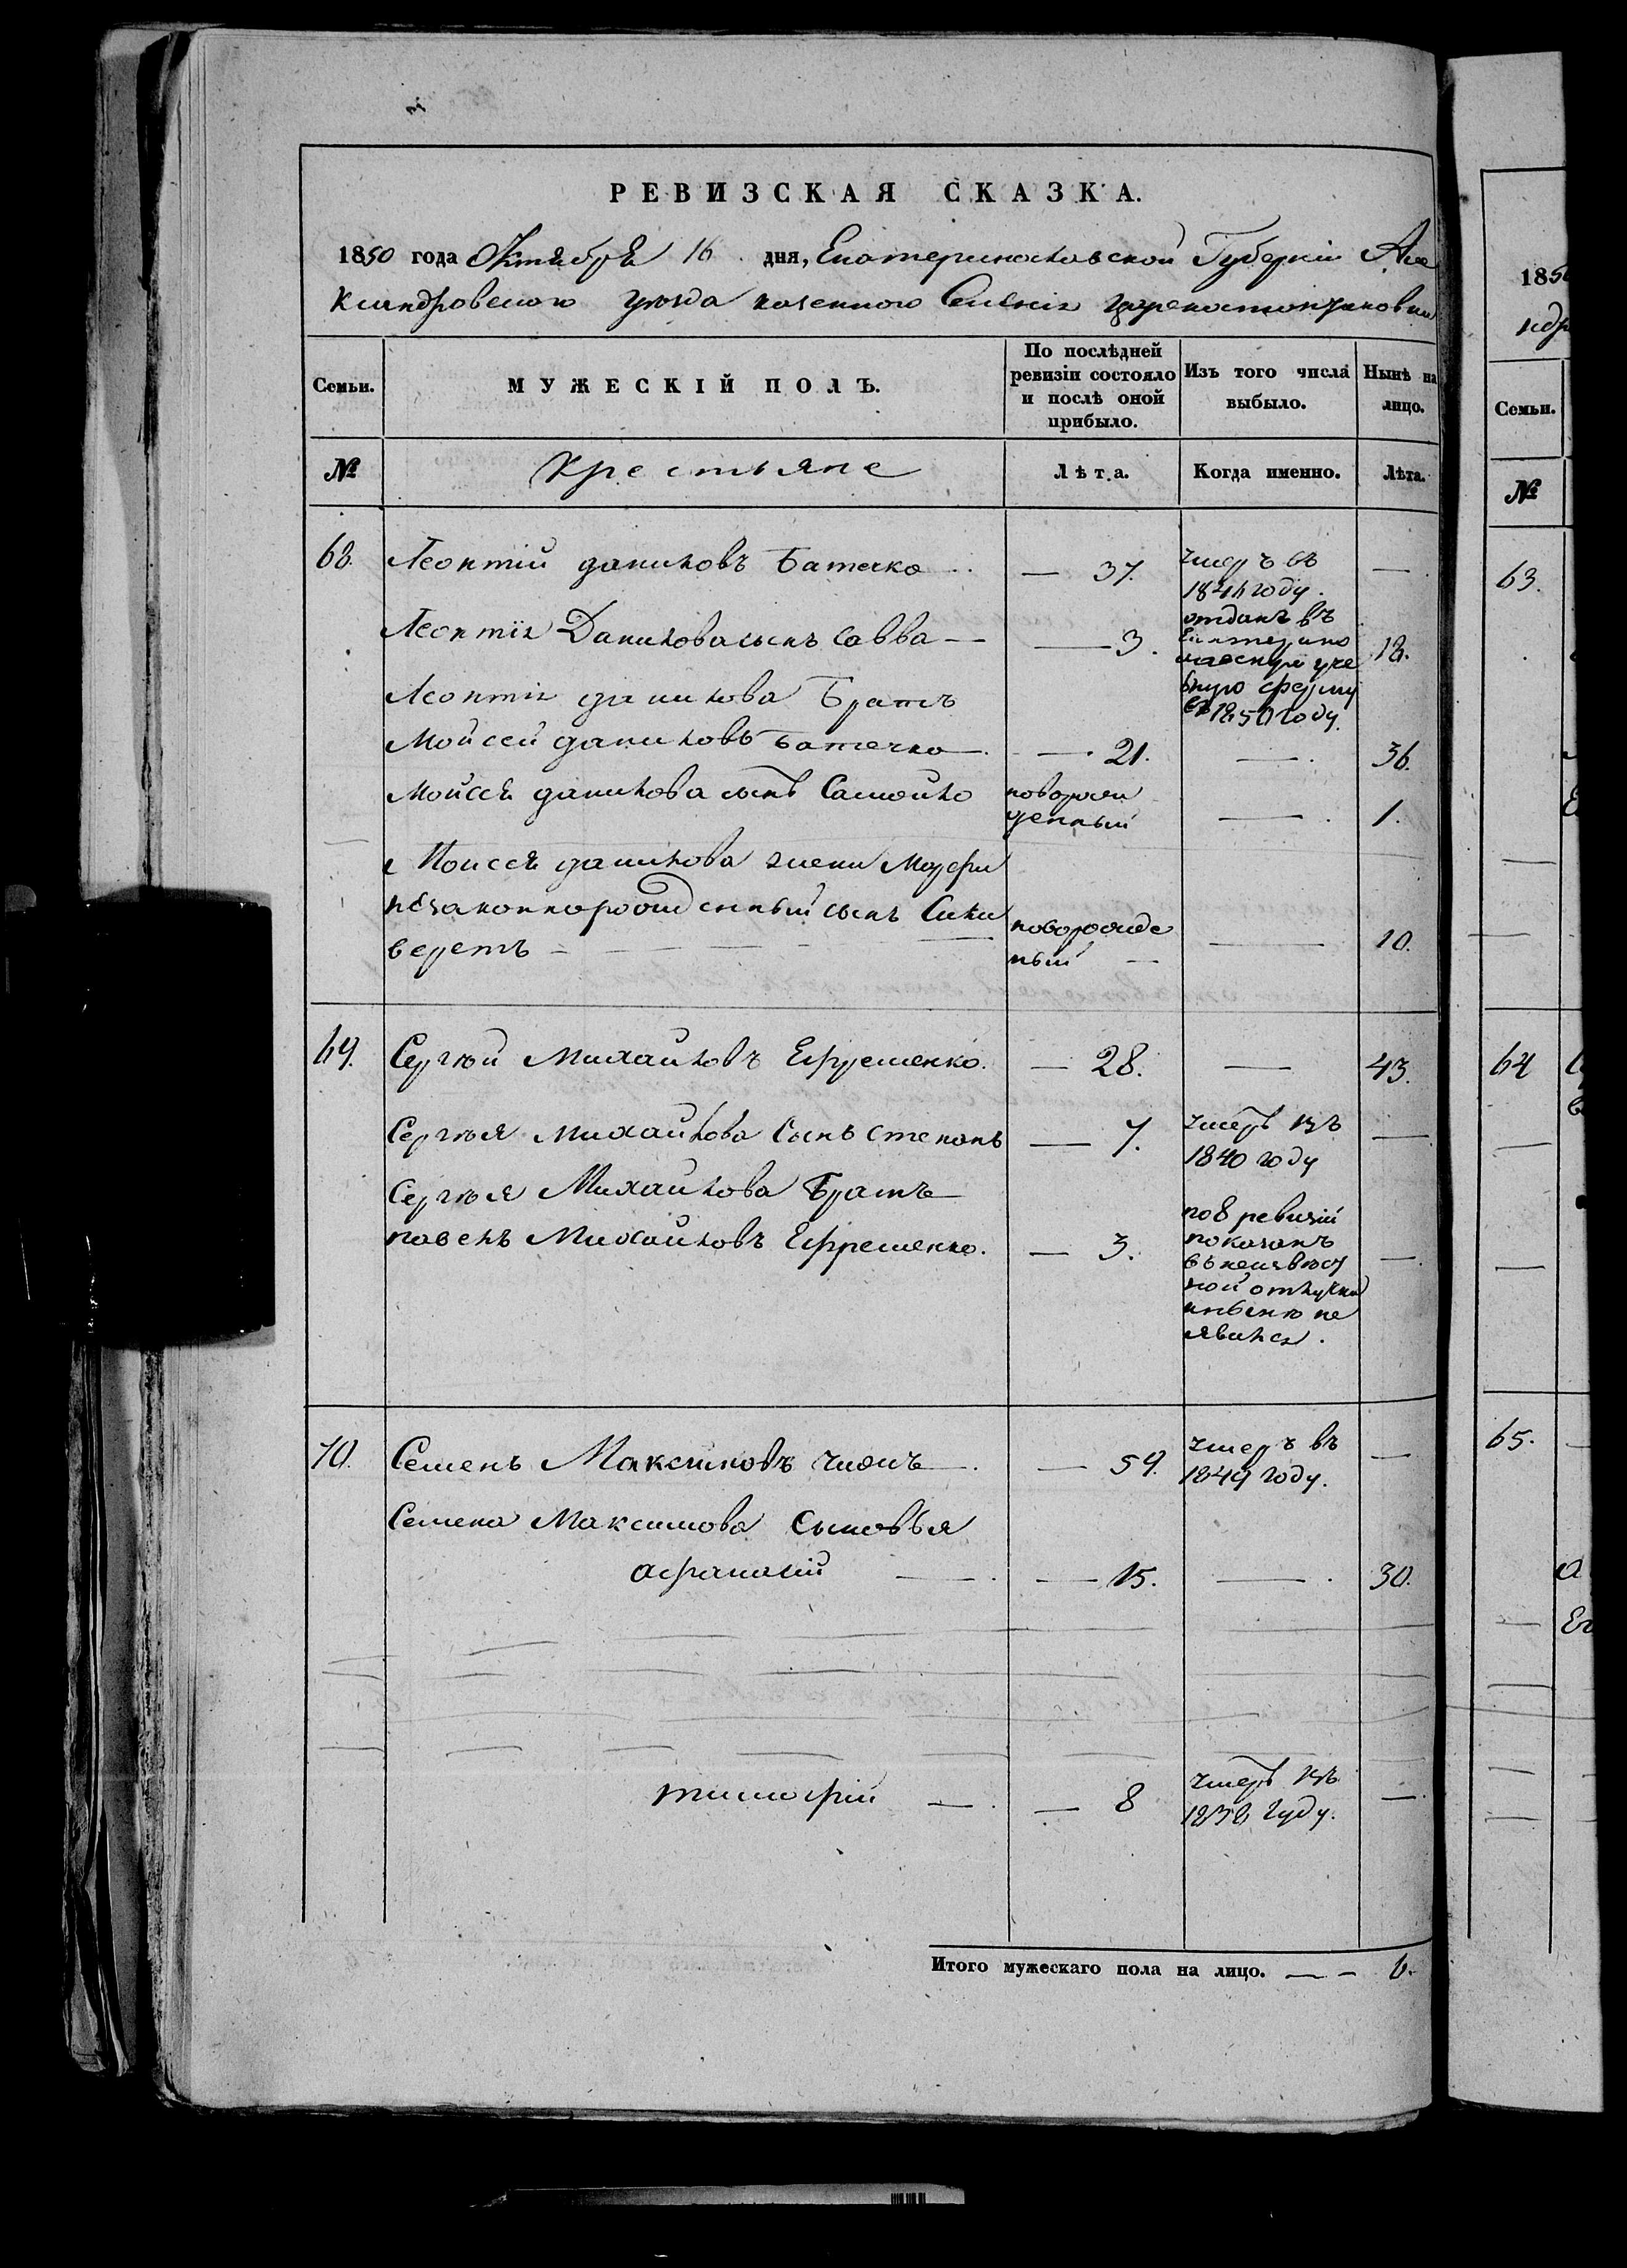 РЕВИЗСКАЯ СКАЗКА.
1850 года Октября 16 дня, Екатеринославской Губернiи Але
ксандровского уѣзда казенного Селенiя
Семьи.
МУЖЕСКIЙ ПОЛЪ.
По послѣдней ревизiи состояло и послѣ оной прибыло.
Изъ того числа выбыло.
Нынѣ на лицо.
№
Крестьяне
Лѣта.
Когда именно.
Лѣта.
68. Леонтiй Даниловъ Батечко — 37. умеръ въ —
1844 году.
Леонтiя Данилова сынъ Савва — 3. отданъ въ 18.
Екатерино
славскую уче
бную ферму
въ 1850 году.
Леонтiя Данилова Братъ
Мойсей Даниловъ Батечко — 21. — 36.
Мойсея Данилова сынъ Самойло новорож
денный — 1.
Моисея Данилова жены Марфы
незаконнорожденный сынъ Сили
верстъ — новорожде
ный — 10.
69. Сергѣй Михайловъ Ефременко. — 28. — 43.
Сергѣя Михайлова Сынъ Степанъ — 7. умеръ въ —
1840 году
Сергѣя Михайлова Братъ
павелъ Михайловъ Ефременко. — 3. по 8 ревизiи —
показанъ
въ неизвѣст
ной отлучки
не
явился.
70. Семенъ Максимовъ — 59. умеръ въ —
1849 году.
Семена Максимова Сыновья
афанасiй — 15. — 30.
тимофiй — 8 умеръ въ —
1838 году.
Итого мужескаго пола на лицо. — 6.
185
Семьи.
№
63.
64
65.